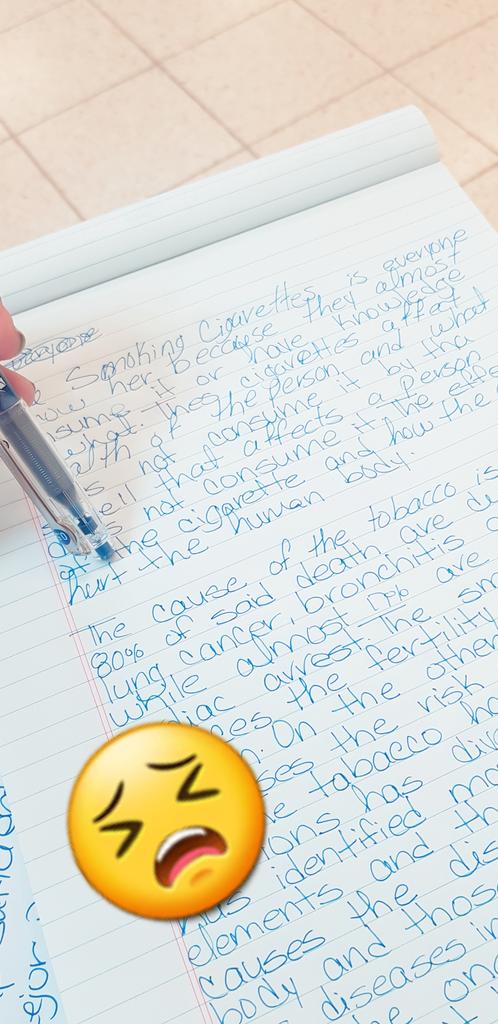 Smoking Cigarettes is everyone
how her because they almost
nsume it or have knowledge
what. Thes cigarettes affect
lth of the person and what
s not consume it by tha
smell that affects a person
s not consume it the effe
of the cigarette and how the
hurt the human body.
The cause of the tobacco is
80% of said death are du
lung cancer, bronchitis
while almost 17% are
iac arrest. The sm
ces the fertility
. On the other
ses the risk
e tobacco ha
ions has dive
has identified mo
elements and th
causes the dis
body and those
s diseases in
he one